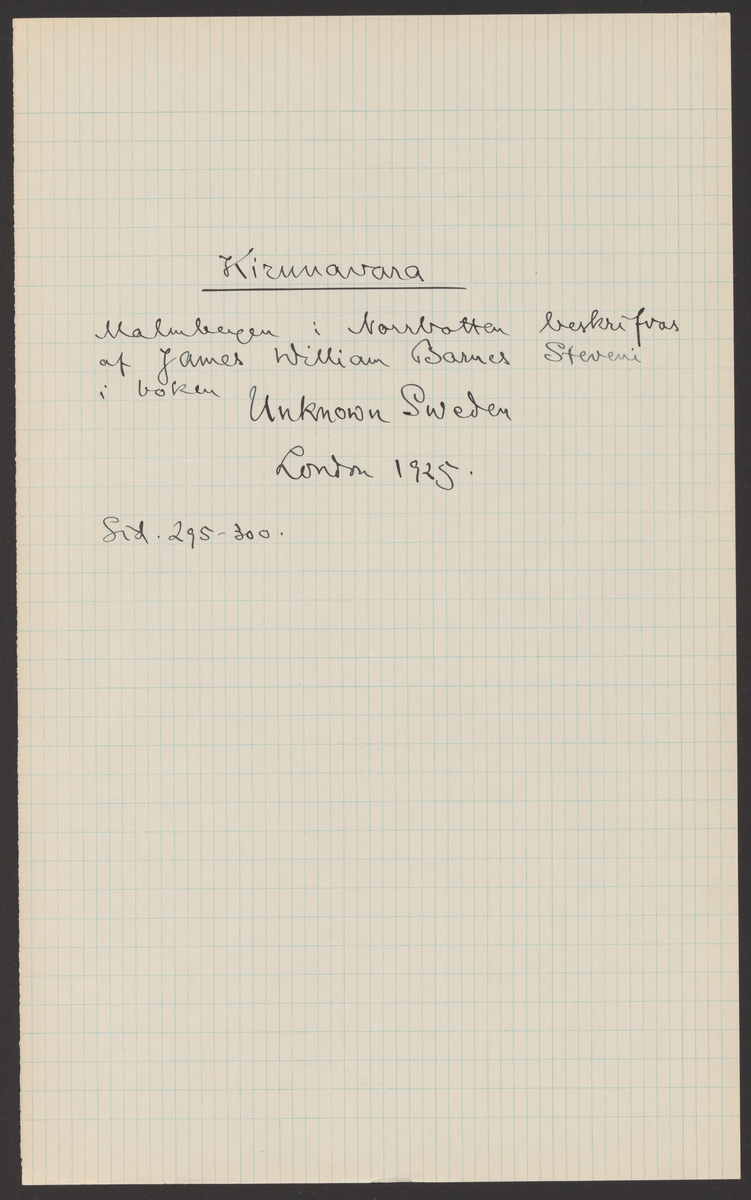 Kirunavara
Malmbergen i Norrbotten beskrifvas
af James William Barnes Steveni
i boken Unknown Sweden
London 1925.
Sid. 295-300.